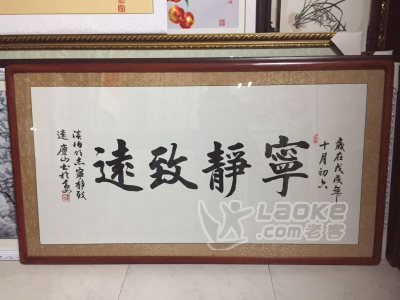 歲在戊戌年
十月初六
寧靜致遠
淡泊明志寧静致
遠
LAOKE
.com老客